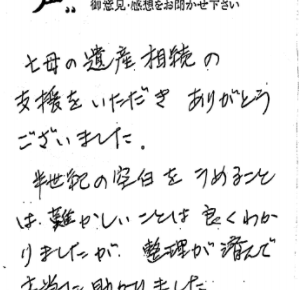 声
御意見・感想をお聞かせ下さい
亡母の遺産相続の
支援をいただき ありがとう
ございました。
半世紀の空白を うめること
は 難かしいことは 良くわか
りましたが 整理が 済んで
本当に助かりました